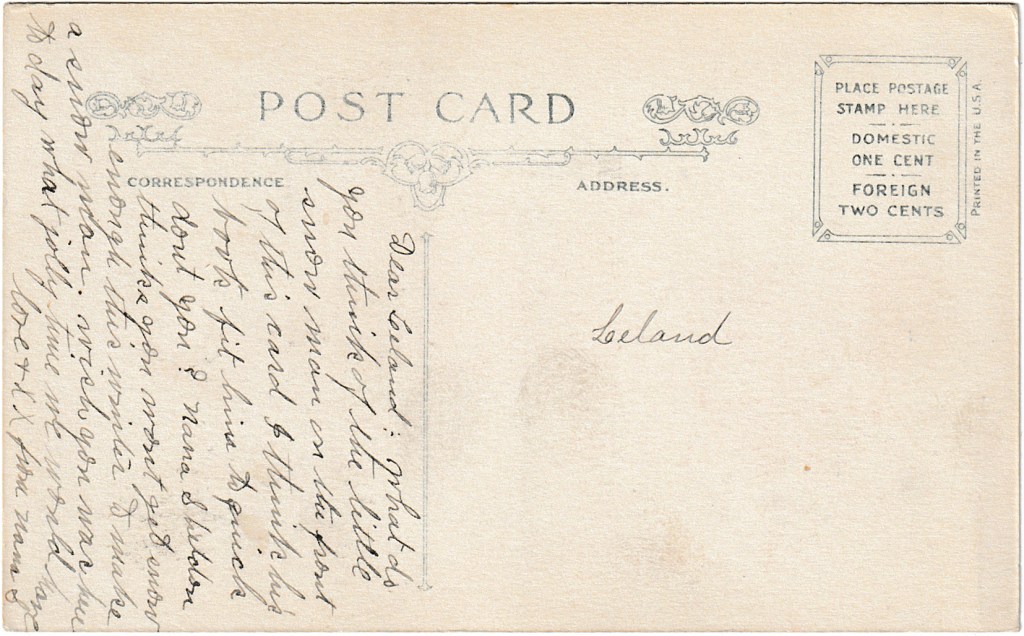 POST CARD
CORRESPONDENCE
ADDRESS.
PLACE POSTAGE
STAMP HERE
DOMESTIC
ONE CENT
FOREIGN
TWO CENTS
PRINTED IN THE U.S.A.
Leland
Dear Leland: What do
you think of the little
snow man on the front
of this card I think his
boots fit him to quick
dont you? Nana Sheldon
thinks you wont get snow
enough this winter to make
a snow man. wish you was here
to day what jolly time we would have
love & X X from nana S